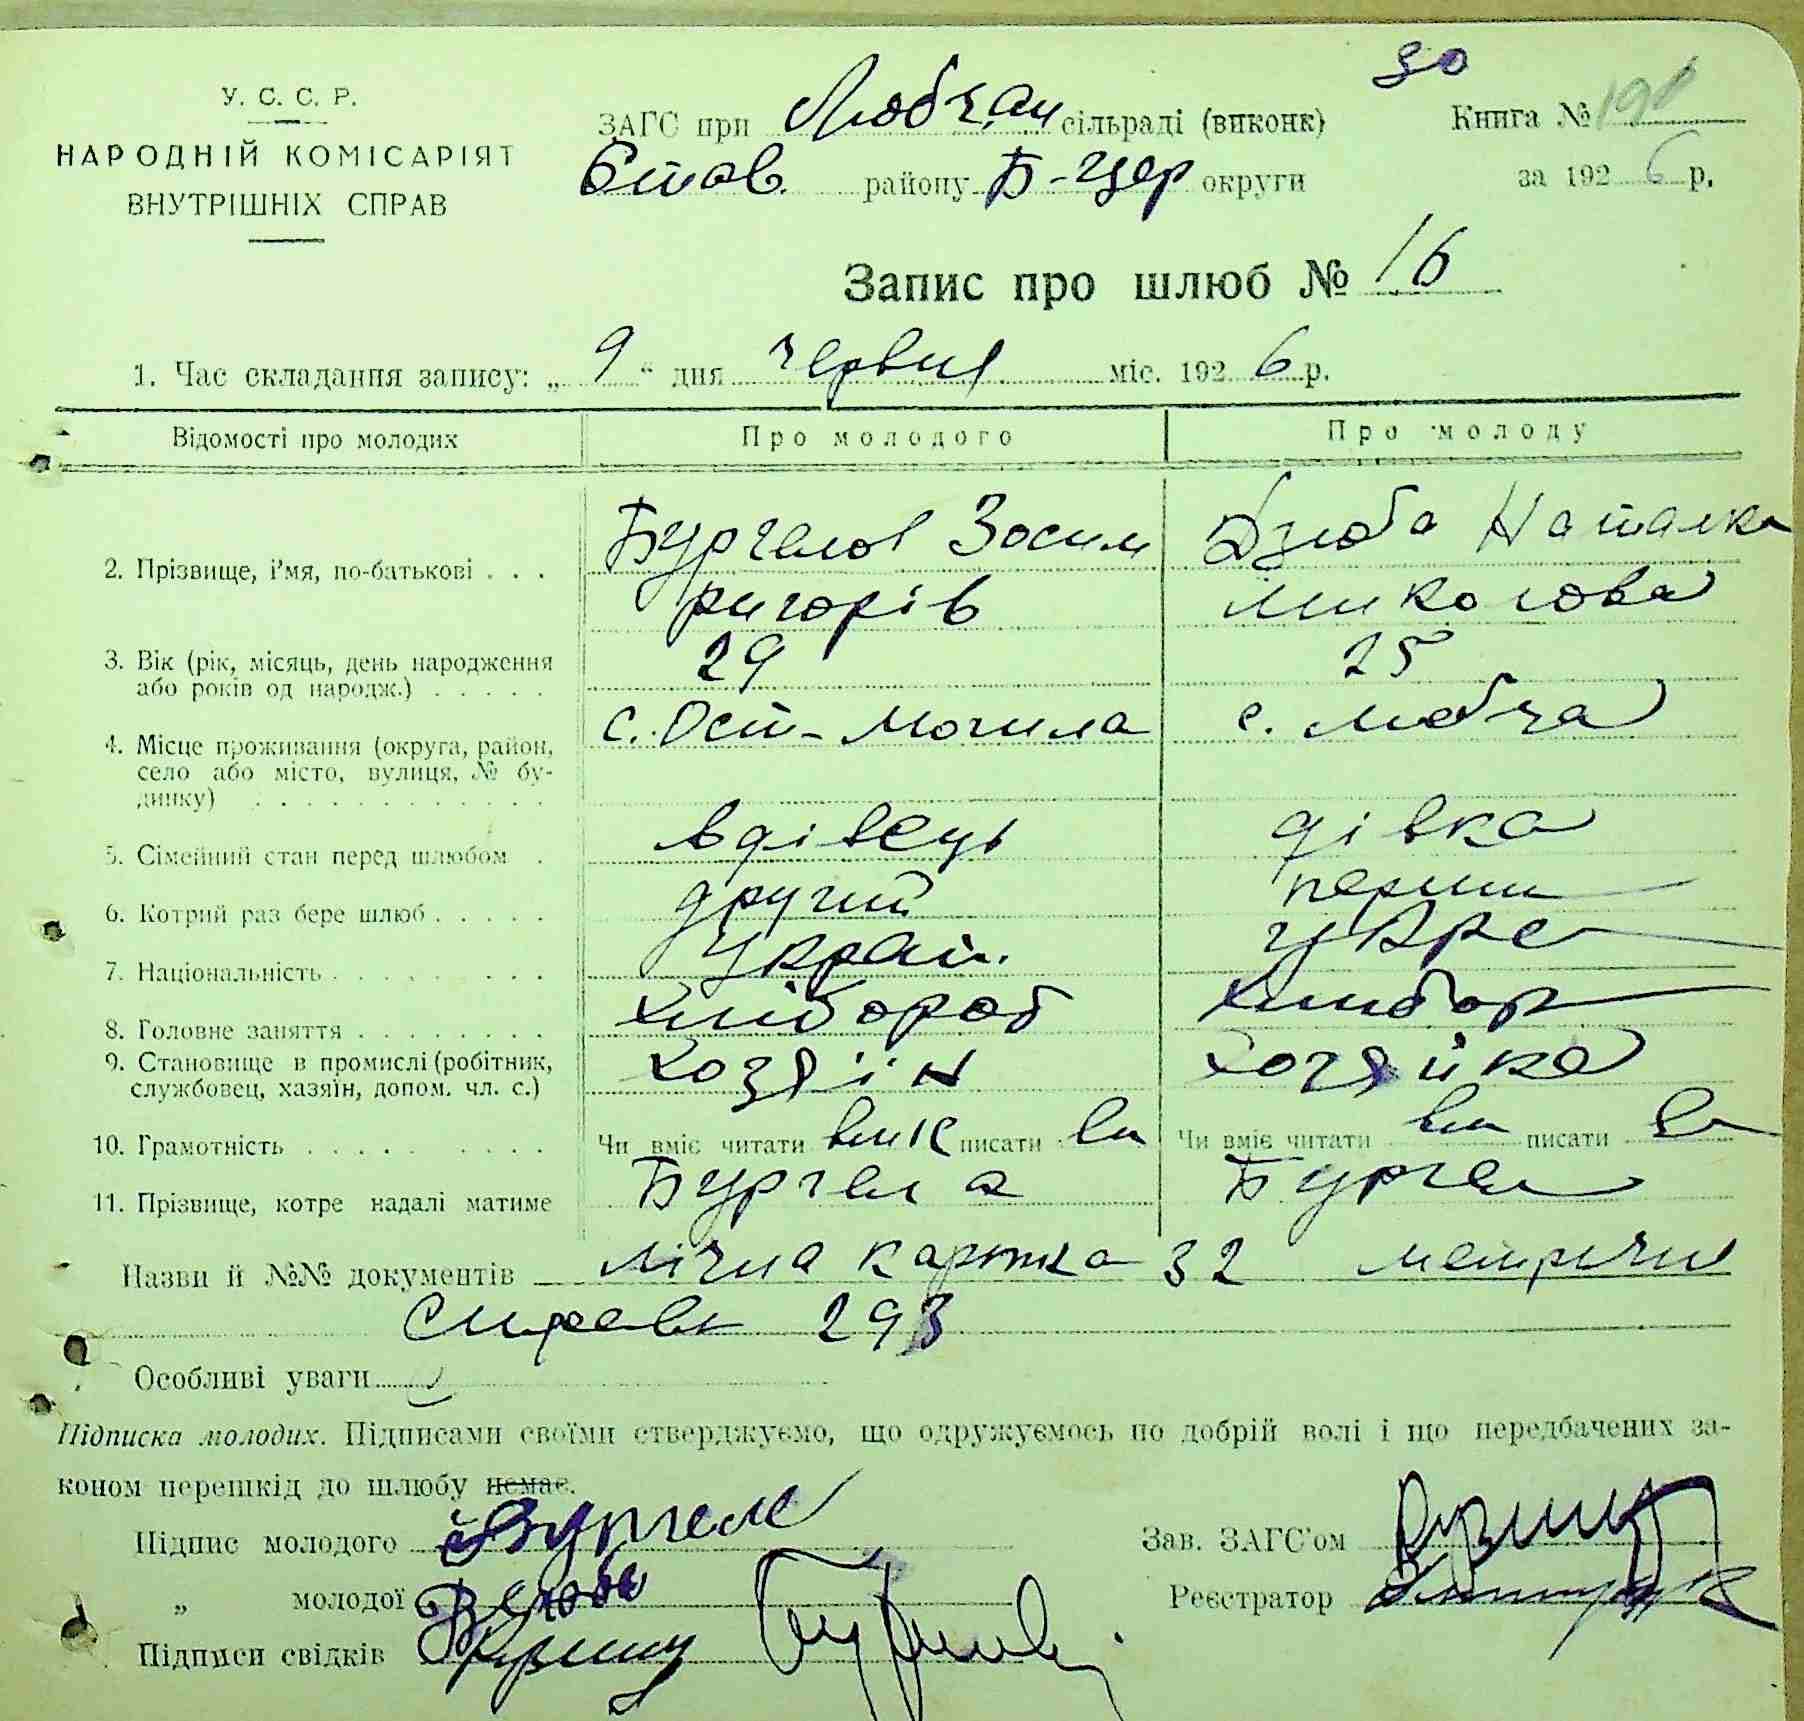 30
У. С. С. Р.
НАРОДНІЙ КОМІСАРІЯТ
ВНУТРІШНІХ СПРАВ
ЗАГС при Любчан сільраді (виконк)
Книга №
Став. району Б-Цер округи
за 1926 р.
Запис про шлюб № 16
1. Час складання запису: „ 9 “ дня червня міс. 1926 р.
Відомості про молодих Про молодого Про молоду
2. Прізвище, і'мя, по-батькові . . . Зосим Дзюба Наталка
Григорів Миколова
3. Вік (рік, місяць, день народження
або років од народж.) . . . . . 29 25
4. Місце проживання (округа, район,
село або місто, вулиця, № бу-
динку) . . . . . . . . . . . . с. Ост-Могила с. Любча
5. Сімейний стан перед шлюбом . вдівець дівка
6. Котрий раз бере шлюб . . . . . другий перши
7. Національність . . . . . . . . Україн. укра
8. Головне заняття . . . . . . . . хлібороб хлибор
9. Становище в промислі (робітник,
службовец, хазяїн, допом. чл. с.) хозяїн хозяйка
10. Грамотність . . . . . . . . . Чи вміє читати писати Чи вміє читати писати
11. Прізвище, котре надалі матиме Бургела Бургел
Назви й №№ документів лічна картка 32 метрични
Справк 293
Особливі уваги
Підписка молодих. Підписами своїми стверджуємо, що одружуємось по добрій волі і що передбачених за-
коном перешкід до шлюбу немає.
Підпис молодого Бургела
Зав. ЗАГС'ом
„ молодої Дзюба
Реєстратор
Підписи свідків